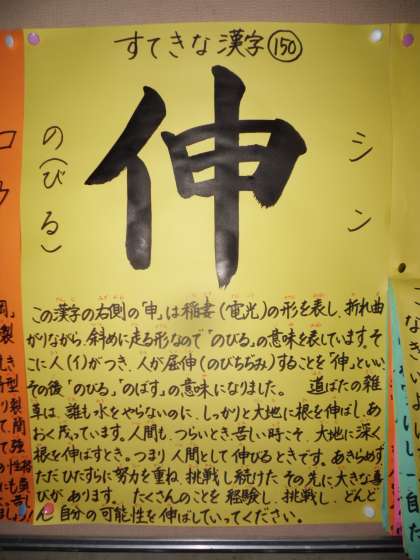 すてきな漢字 150
伸
シン
の(びる)
この漢字の右側の「申」は稲妻(電光)の形を表し、折れ曲
がりながら、斜めに走る形なので「のびる」の意味を表しています。そ
こに人(イ)がつき、人が屈伸(のびちぢみ)することを「伸」といい、
その後「のびる」、「のばす」の意味になりました。 道ばたの雑
草は、誰も水をやらないのに、しっかりと大地に根を伸ばし、あ
おく茂っています。人間も、つらいとき、苦しい時こそ、大地に深く
根を伸ばすとき。つまり人間として伸びるときです。あきらめず、
ただひたすらに努力を重ね、挑戦し続けたその先に、大きな喜
びがあります。 たくさんのことを経験し、挑戦し、どんど
ん自分の可能性を伸ばしていってください。